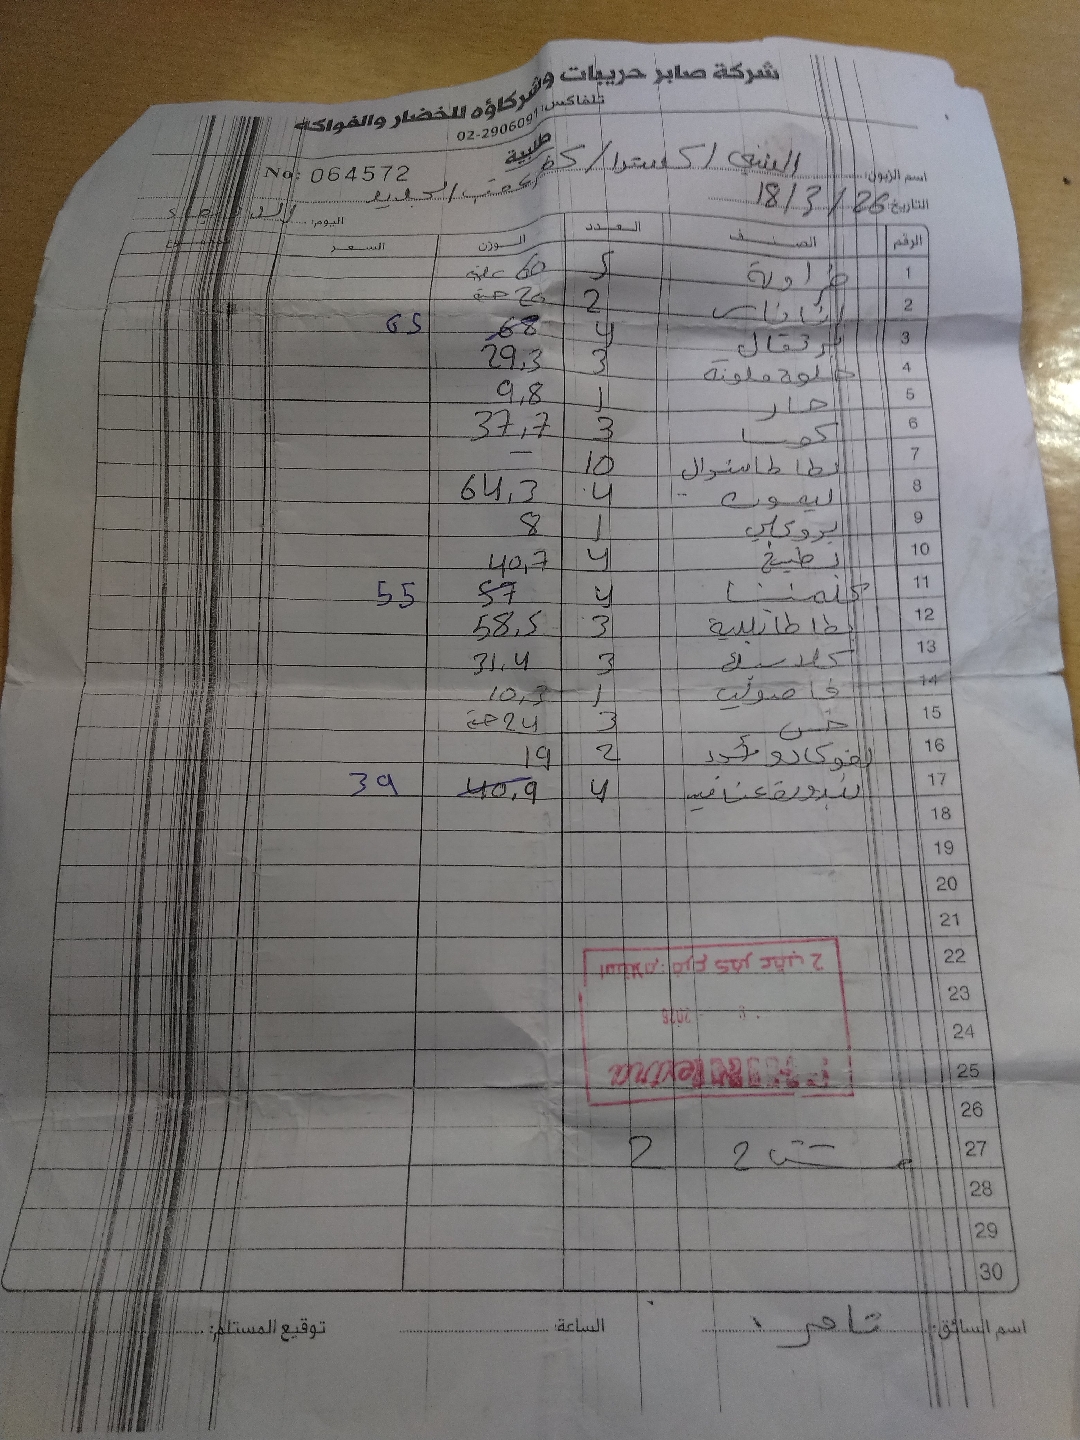 شركة صابر حريبات وشركاؤه للخضار والفواكه
تلفاكس: 02-2906091
طلبية
No: 064572
اسم الزبون: الشني اكسترا / كفر عقب الجديد
التاريخ: 18/3/26 اليوم: الاربعاء
الرقم الصنف العدد الوزن السعر المجموع
1 طراوية 5 60 علبة
2 أناناس 2 20 حبة
3 برتقال 4 68 65
4 حلوة ملونة 3 29,3
5 حار 1 9,8
6 كوسا 3 37,7
7 بطاطا شوال 10 –
8 ليمون 4 64,3
9 بروكلي 1 8
10 بطيخ 4 40,7
11 كلمنتنا 4 57 55
12 بطاطا بلدية 3 58,5
13 3 31,4
14 فاصوليا 1 10,3
15 خس 3 24 حبة
16 افوكادو 2 19
17 بندورة عناقيد 4 40,9 39
18
19
20
21
22
23
24
25
26
27 مشتب 2 2
28
29
30
استلام فرع كفر عقب 2
2026
extra
اسم السائق: تامر الساعة: توقيع المستلم: